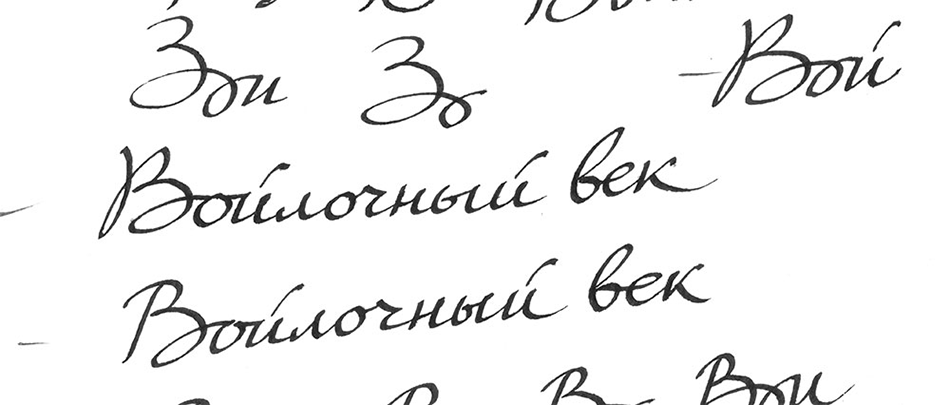 Зои Зо Вой
Войлочный век
Войлочный век
Вои